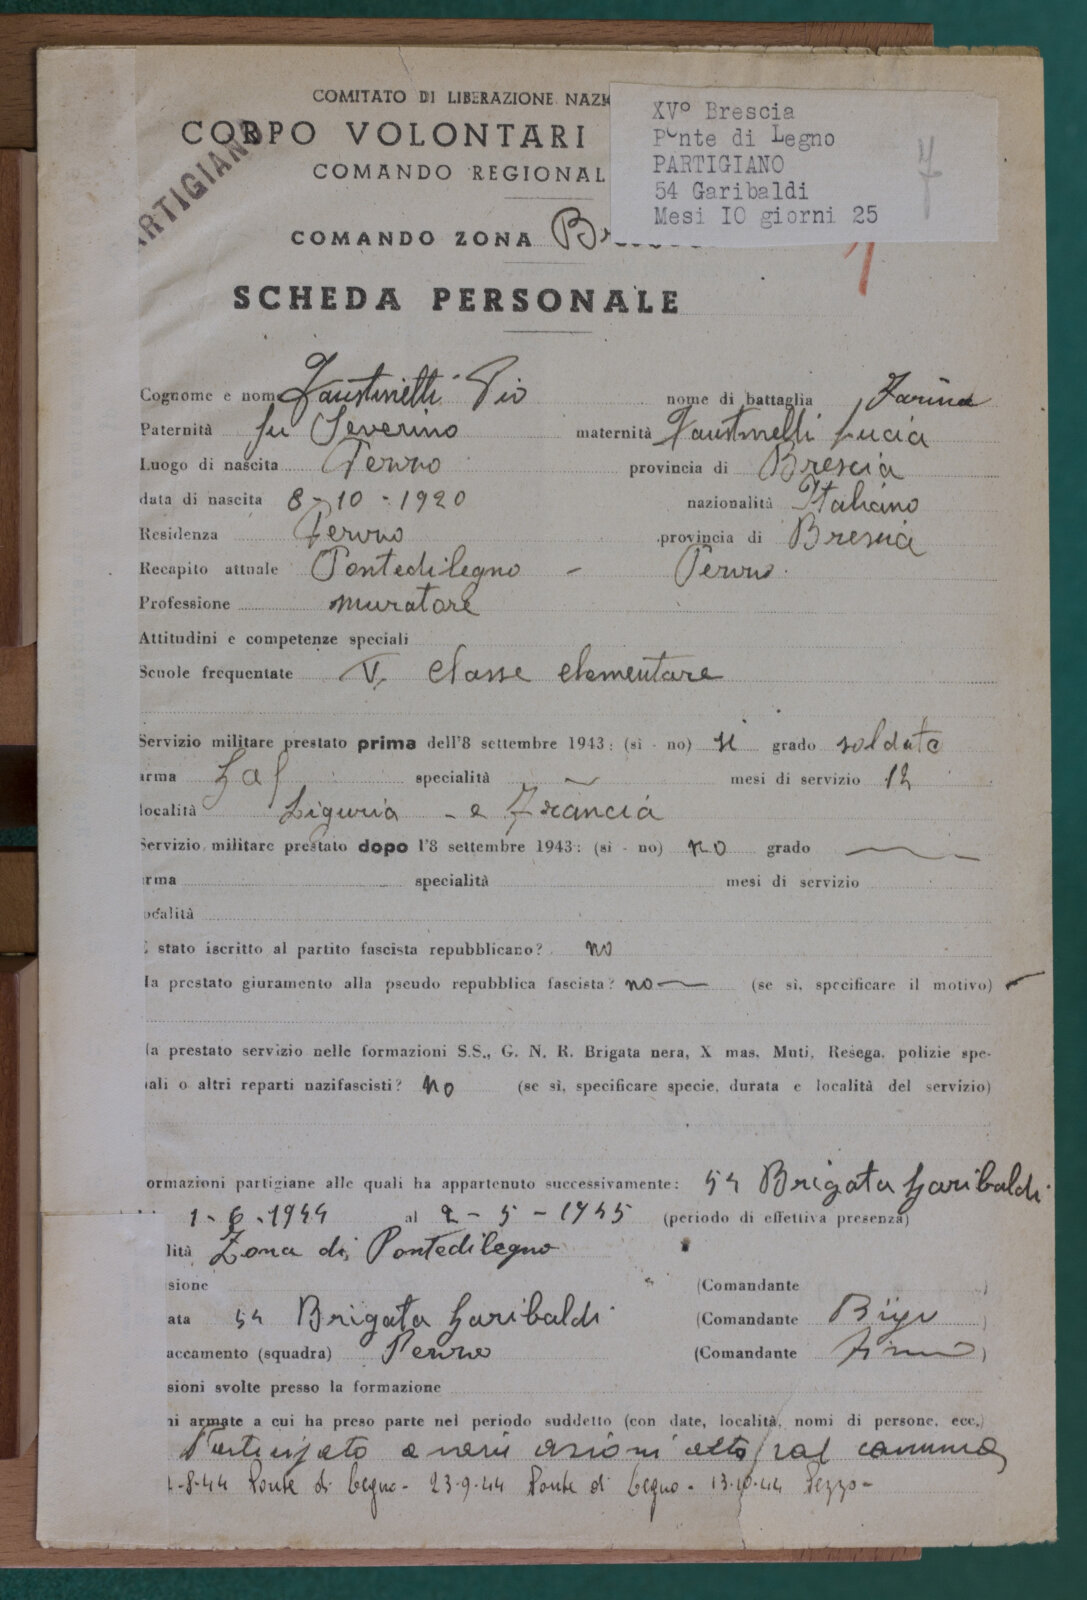 COMITATO DI LIBERAZIONE
XVº Brescia
CORPO VOLONTARI
Ponte di Legno
COMANDO REGIONAL
PARTIGIANO
54 Garibaldi
Mesi IO giorni 25
7
ARTIGIANO
COMANDO ZONA
1
SCHEDA PERSONALE
Cognome e nome Faustinelli Pio nome di battaglia Farina
Paternità fu Severino maternità Faustinelli Lucia
Luogo di nascita Pezzo provincia di Brescia
data di nascita 8-10-1920 nazionalità Italiano
Residenza Pezzo provincia di Brescia
Recapito attuale Pontedilegno - Pezzo
Professione muratore
Attitudini e competenze speciali
Scuole frequentate V. classe elementare
Servizio militare prestato prima dell'8 settembre 1943: (sì - no) si grado soldato
arma Gaf specialità mesi di servizio 12
località Liguria - e Francia
Servizio militare prestato dopo l'8 settembre 1943: (sì - no) no grado
rma specialità mesi di servizio
ocalità
stato iscritto al partito fascista repubblicano? no
Ha prestato giuramento alla pseudo repubblica fascista? no (se sì, specificare il motivo) -
Ha prestato servizio nelle formazioni S.S., G. N. R. Brigata nera, X mas, Muti, Resega, polizie spe-
iali o altri reparti nazifascisti? no (se sì, specificare specie, durata e località del servizio)
ormazioni partigiane alle quali ha appartenuto successivamente: 54 Brigata Garibaldi
1-6-1944 al 2-5-1945 (periodo di effettiva presenza)
lità Zona di Pontedilegno
sione (Comandante )
ata 54 Brigata Garibaldi (Comandante )
accamento (squadra) Pezzo (Comandante )
sioni svolte presso la formazione
ni armate a cui ha preso parte nel periodo suddetto (con date, località, nomi di persone, ecc.)
azioni
-8-44 Ponte di Legno - 23-9-44 Ponte di Legno - 13-10-44 Pezzo -